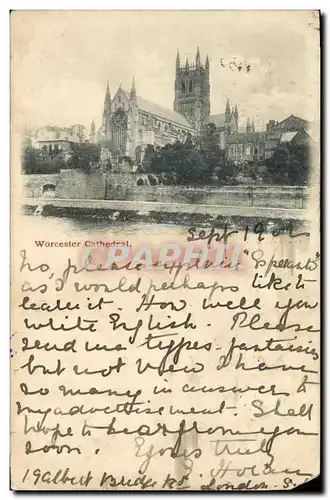 Worcester Cathedral.
Sept 190
No, please "Esperanto"
as I would perhaps like to
learn it How well you
write English. Please
send me types, fantaisies
but not view I have
so many in answer to
my advertisement. Shall
hope to hear from you
soon. Yours truly
19 Albert Bridge Rd London. S.
CPARAMA